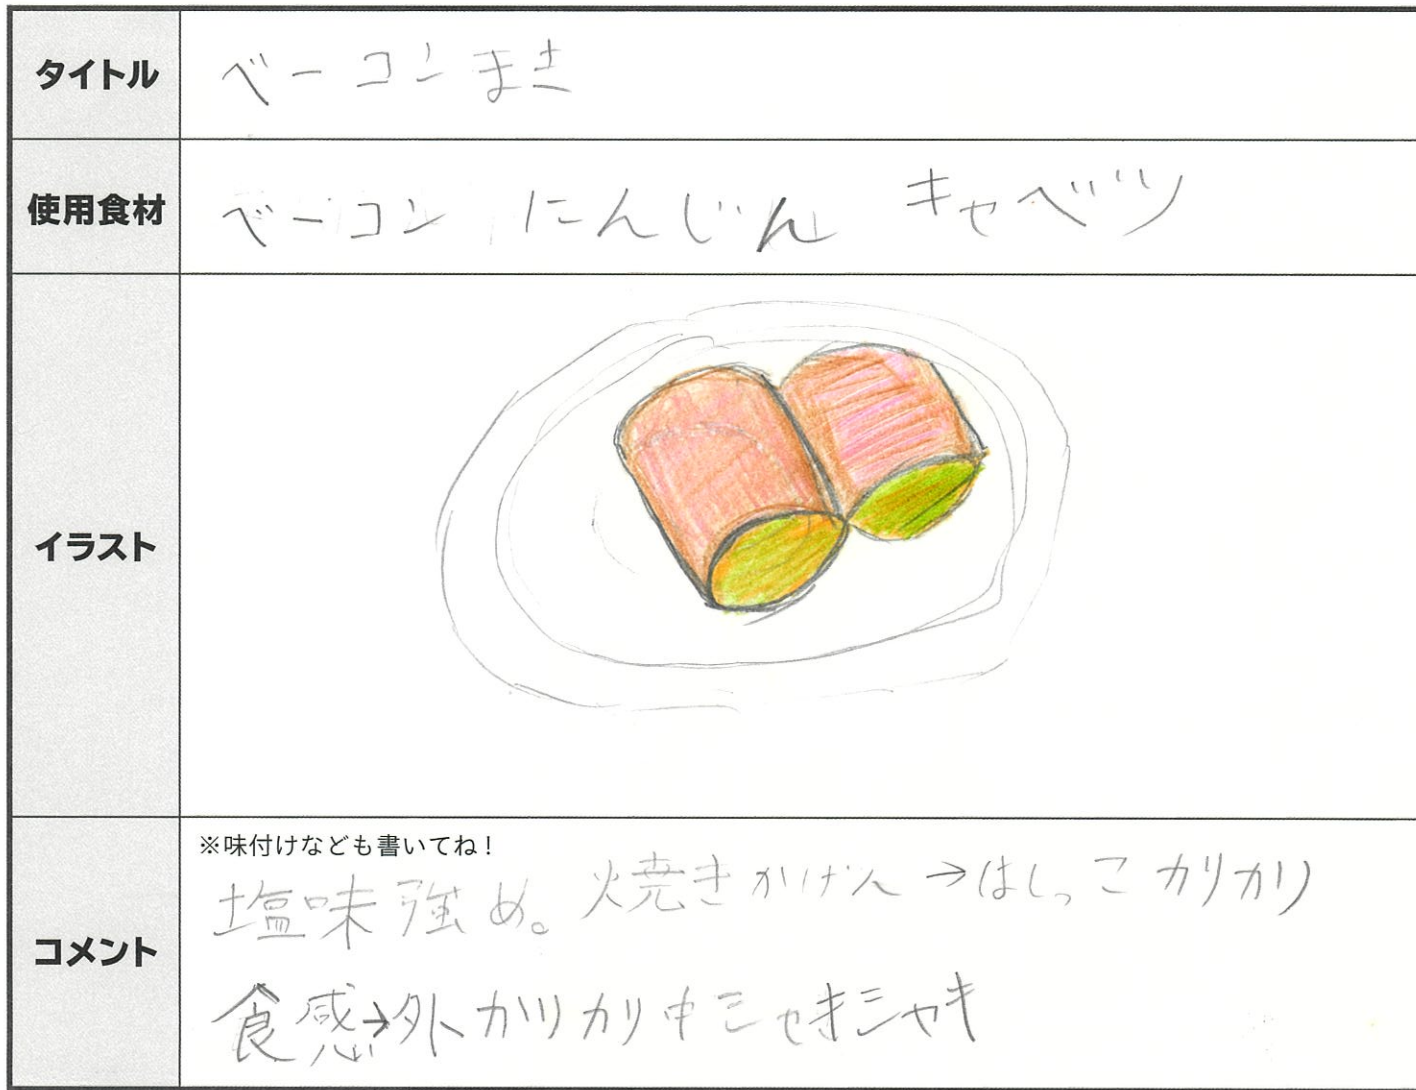 タイトル
ベーコンまき
使用食材
ベーコン にんじん キャベツ
イラスト
コメント
※味付けなども書いてね！
塩味強め。焼きかげん→はしっこカリカリ
食感→外カリカリ中シャキシャキ